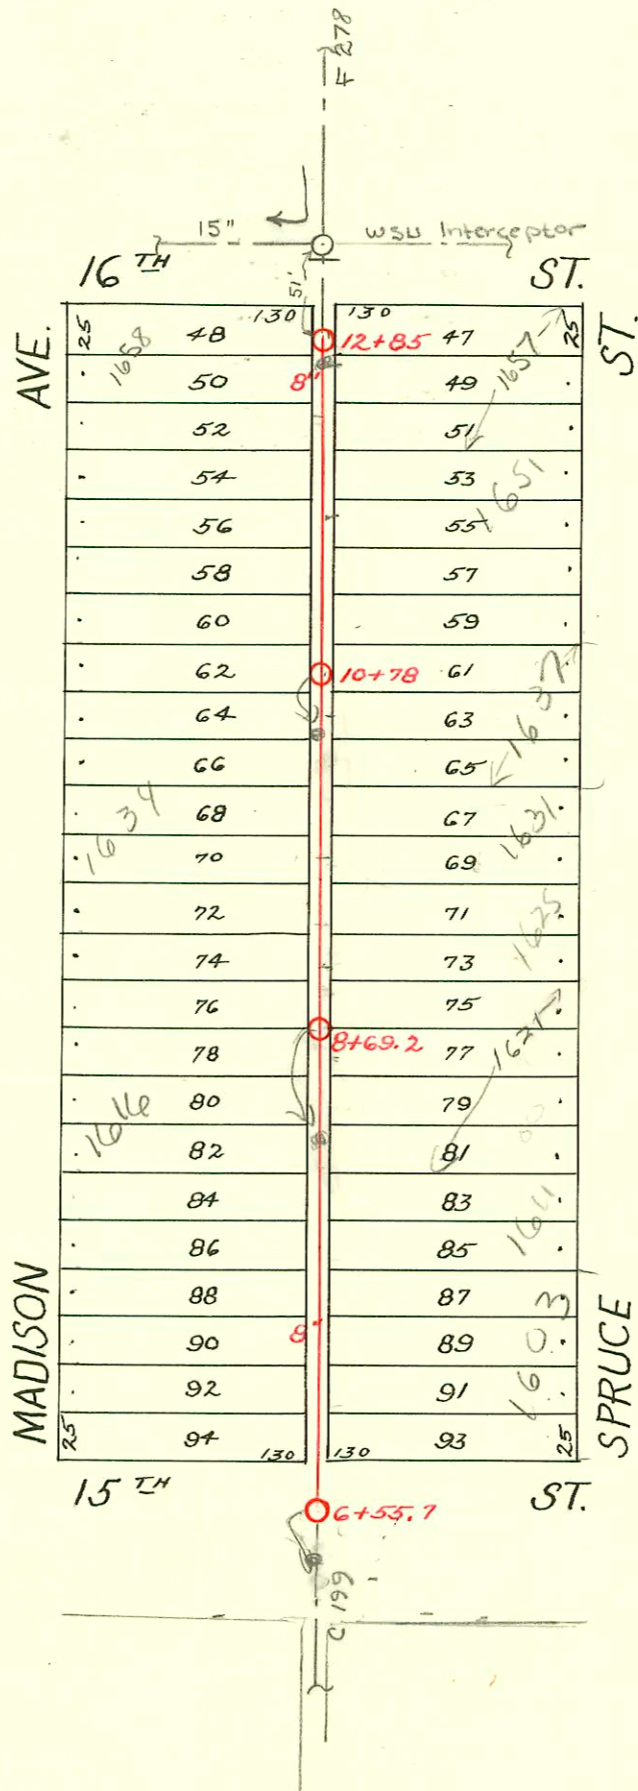 F 278
15" WSU Interceptor
16 TH ST.
51'
AVE. ST.
25 48 130 130 12+85 47 25
1658 1657
50 8" 49
52 51
54 53
1651
56 55
58 57
60 59
62 10+78 61
1637
64 63
66 65
1634 1631
68 67
70 69
72 71
1625
74 73
76 75
8+69.2
1621
78 77
80 79
1616
82 81
84 83
1611
86 85
88 87
8" 1603
90 89
92 91
25 94 130 130 93 25
MADISON SPRUCE
15 TH ST.
6+55.7
C 199